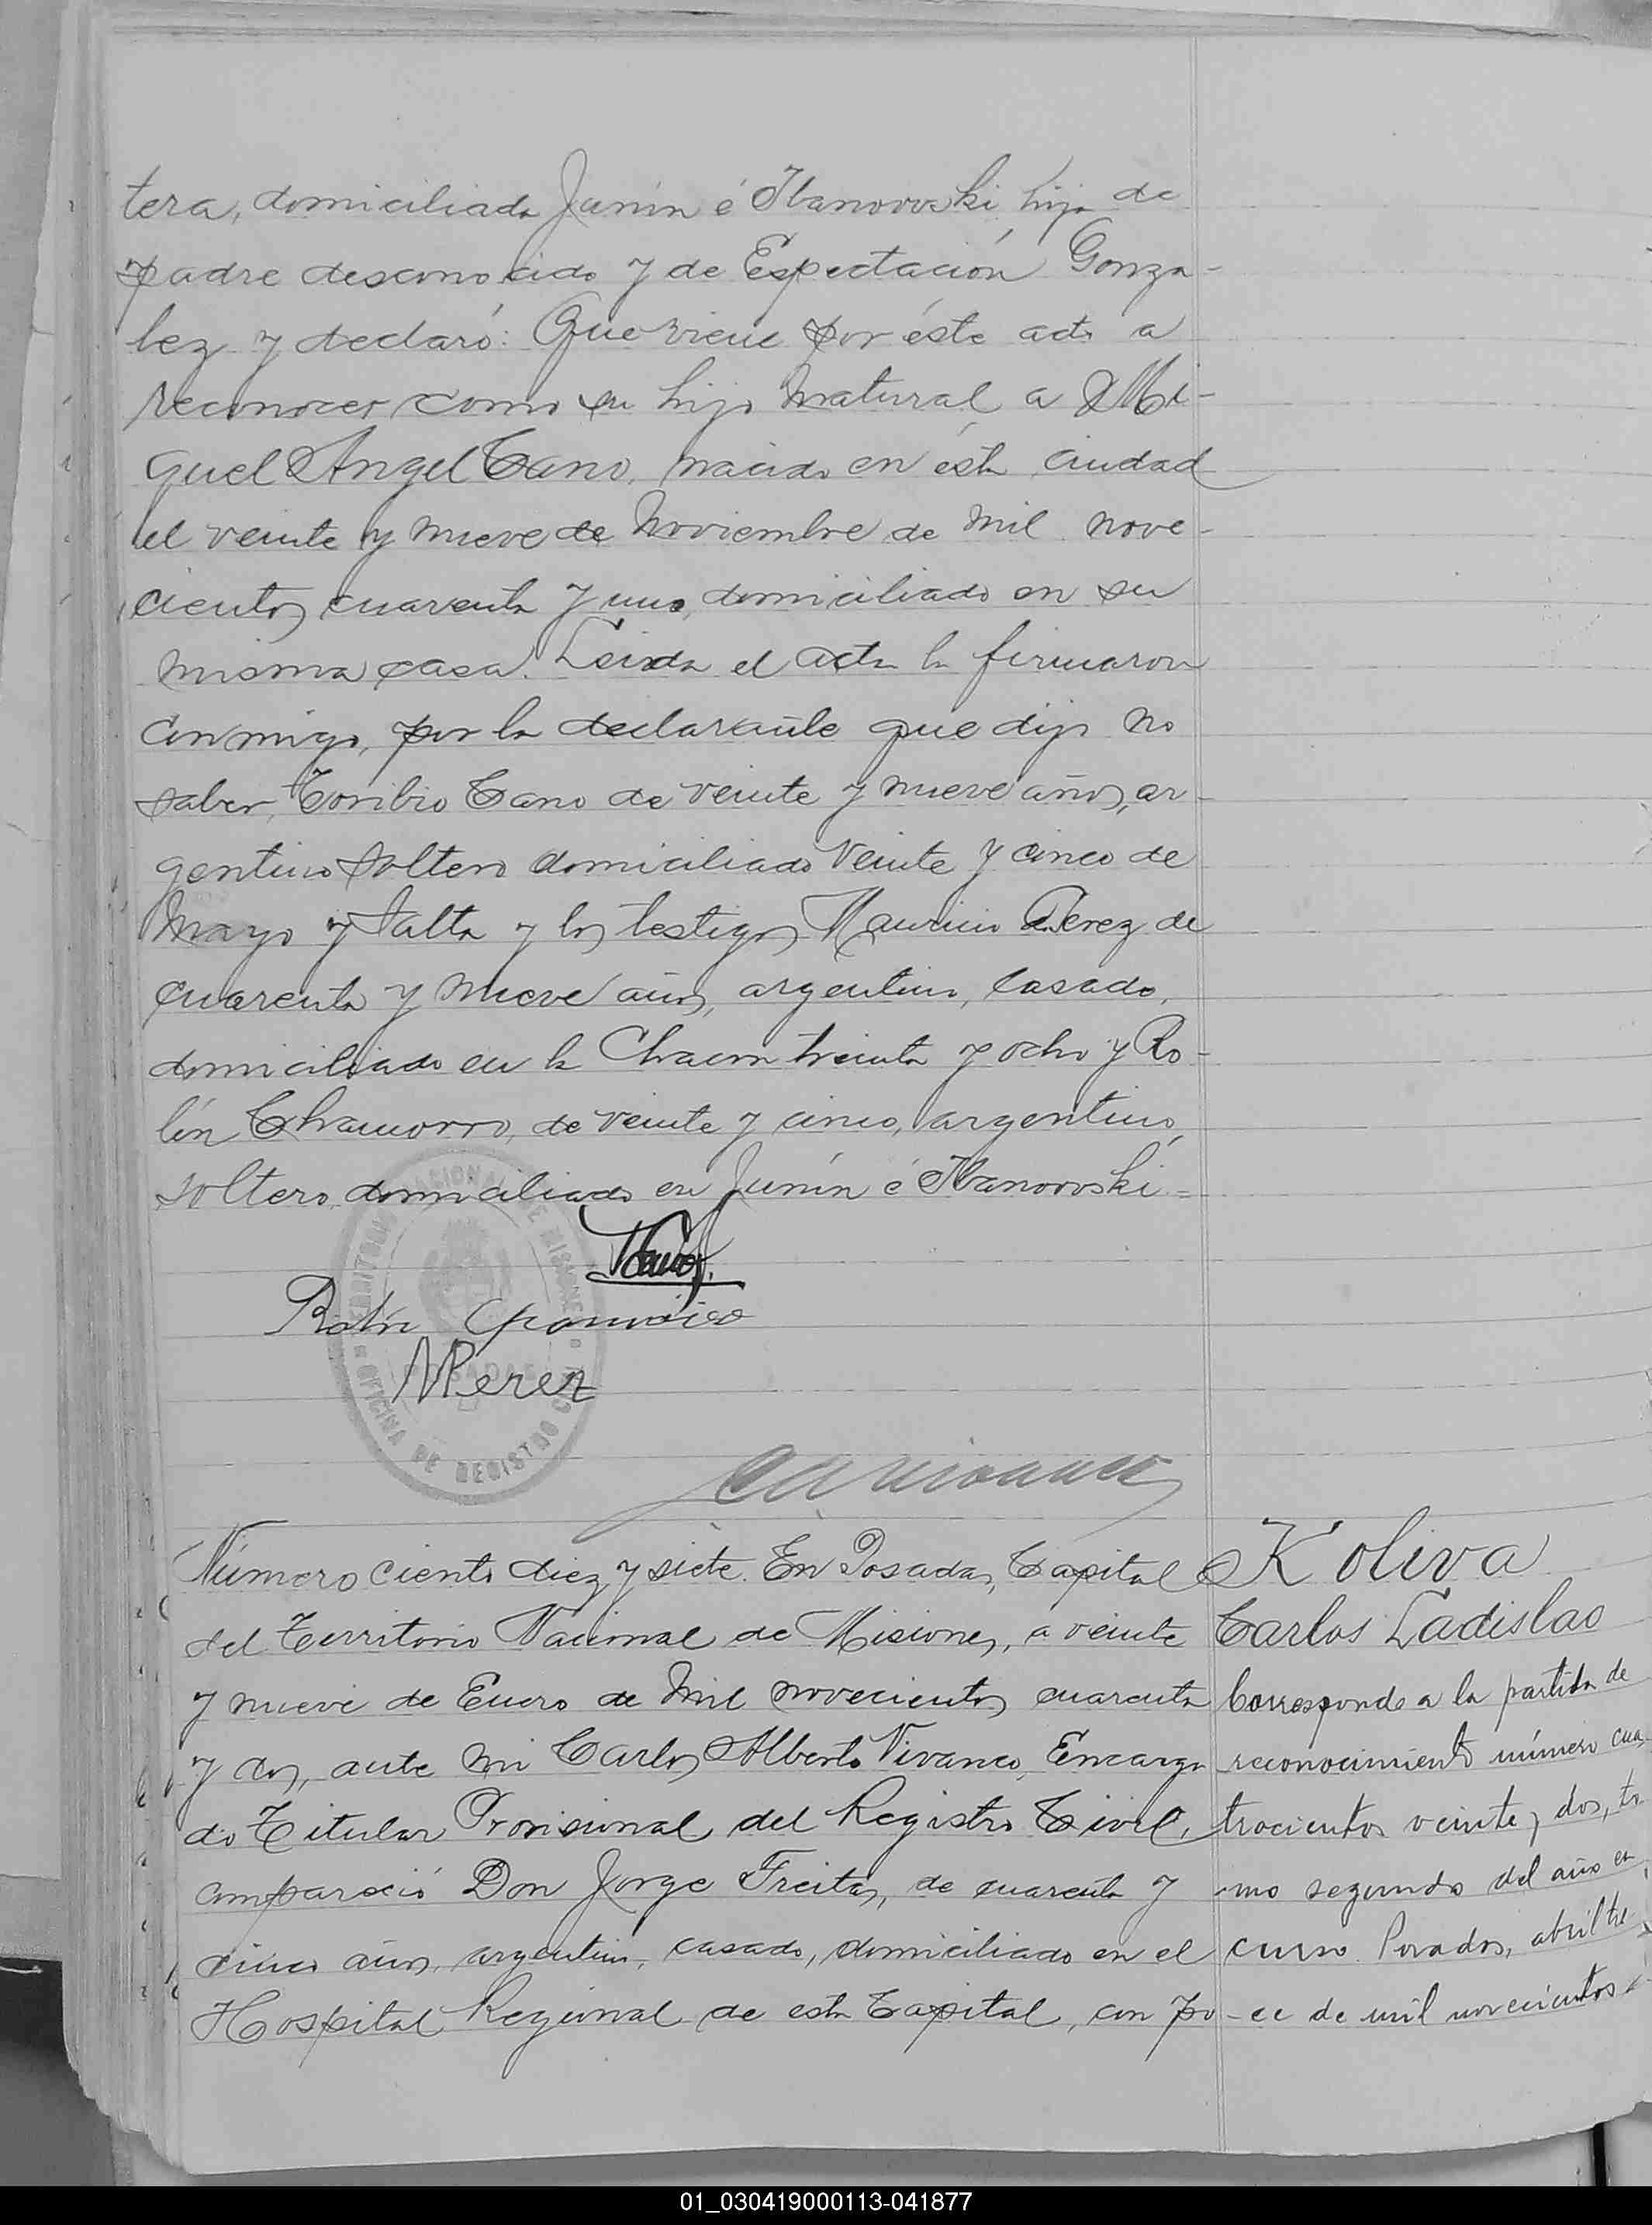 tera, domiciliada Junín é Ibanovoski hija de
padre desconocido y de Espectación Gonza-
lez y declaró: Que viene por éste acto a
reconocer como su hijo natural a Mi-
guel Angel Cano, nacido en ésta ciudad
el veinte y nueve de Noviembre de mil nove-
cientos cuarenta y uno, domiciliado en su
misma casa. Leida el acta la firmaron
conmigo, por la declarante que dijo no
saber, Toribio Cano de veinte y nueve años, ar-
gentino soltero domiciliado Veinte y cinco de
Mayo y Salta y los testigos Mauricio Perez de
cuarenta y nueve años, argentino, casado,
domiciliado en la Chacra treinta y ocho y Ro-
lín Chamorro, de veinte y cinco, argentino,
soltero, domiciliado en Junín é Ibanovoski =
TCano
Chamorro
MPerez
TERRITORIO NACIONAL DE MISIONES
POSADAS
OFICINA DE REGISTRO CIVIL
Número ciento diez y siete. En Posadas, Capital
del Territorio Nacional de Misiones, a veinte
y nueve de Enero de mil novecientos cuarenta
y dos, ante mi Carlos Alberto Vivanco, Encarga
do Titular Provisional del Registro Civil,
compareció Don Jorge Freitas, de cuarenta y
cinco años, argentino, casado, domiciliado en el
Hospital Regional de esta Capital, con po
Koliva
Carlos Ladislao
Corresponde a la partida de
reconocimiento número cua-
trocientos veinte y dos, to-
mo segundo del año en
curso. Posadas, abril tre
ce de mil novecientos
01_030419000113-041877